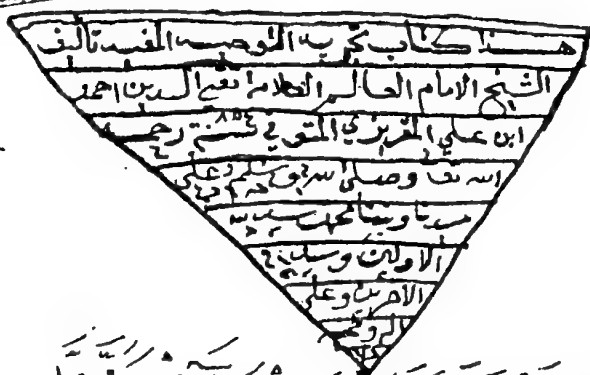 هذا كتاب تجريد التوحيد المفيد تأليف
الشيخ الامام العالم العلامة تقي الدين احمد
ابن علي المقريزي المتوفي سنة ٨٥٤ رحمه
الله تعا وصلى الله وسلم على
سيدنا ونبينا محمد سيد
الاولين وسيد
الاخرين وعلى
اله وصحبه